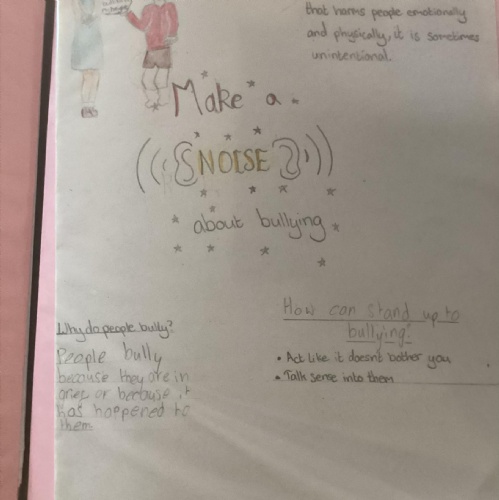 that harms people emotionally
and physically, it is sometimes
unintentional.
Make a
NOISE
about bullying
Why do people bully?
People bully
because they are in
or because it
has happened to
them
How can stand up to
bullying?
• Act like it doesn't bother you
• Talk sense into them